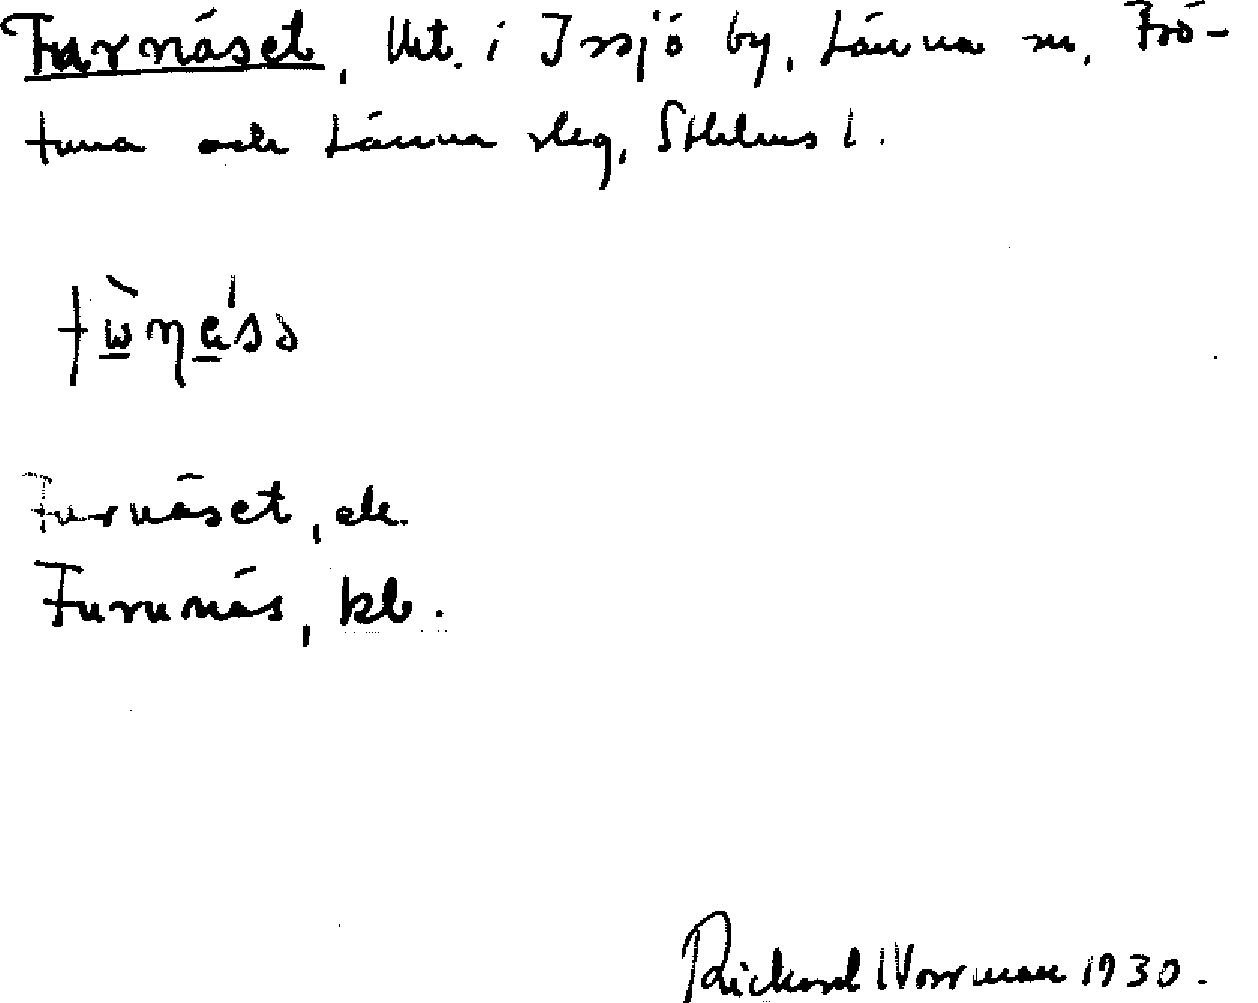 Furnäset, Utt. i Issjö by, Länna sn, Frö-
tuna och Länna slég, Sthlms l.
Furnäset, ek.
Furunäs, kb.
Rickard Norrman 1930.